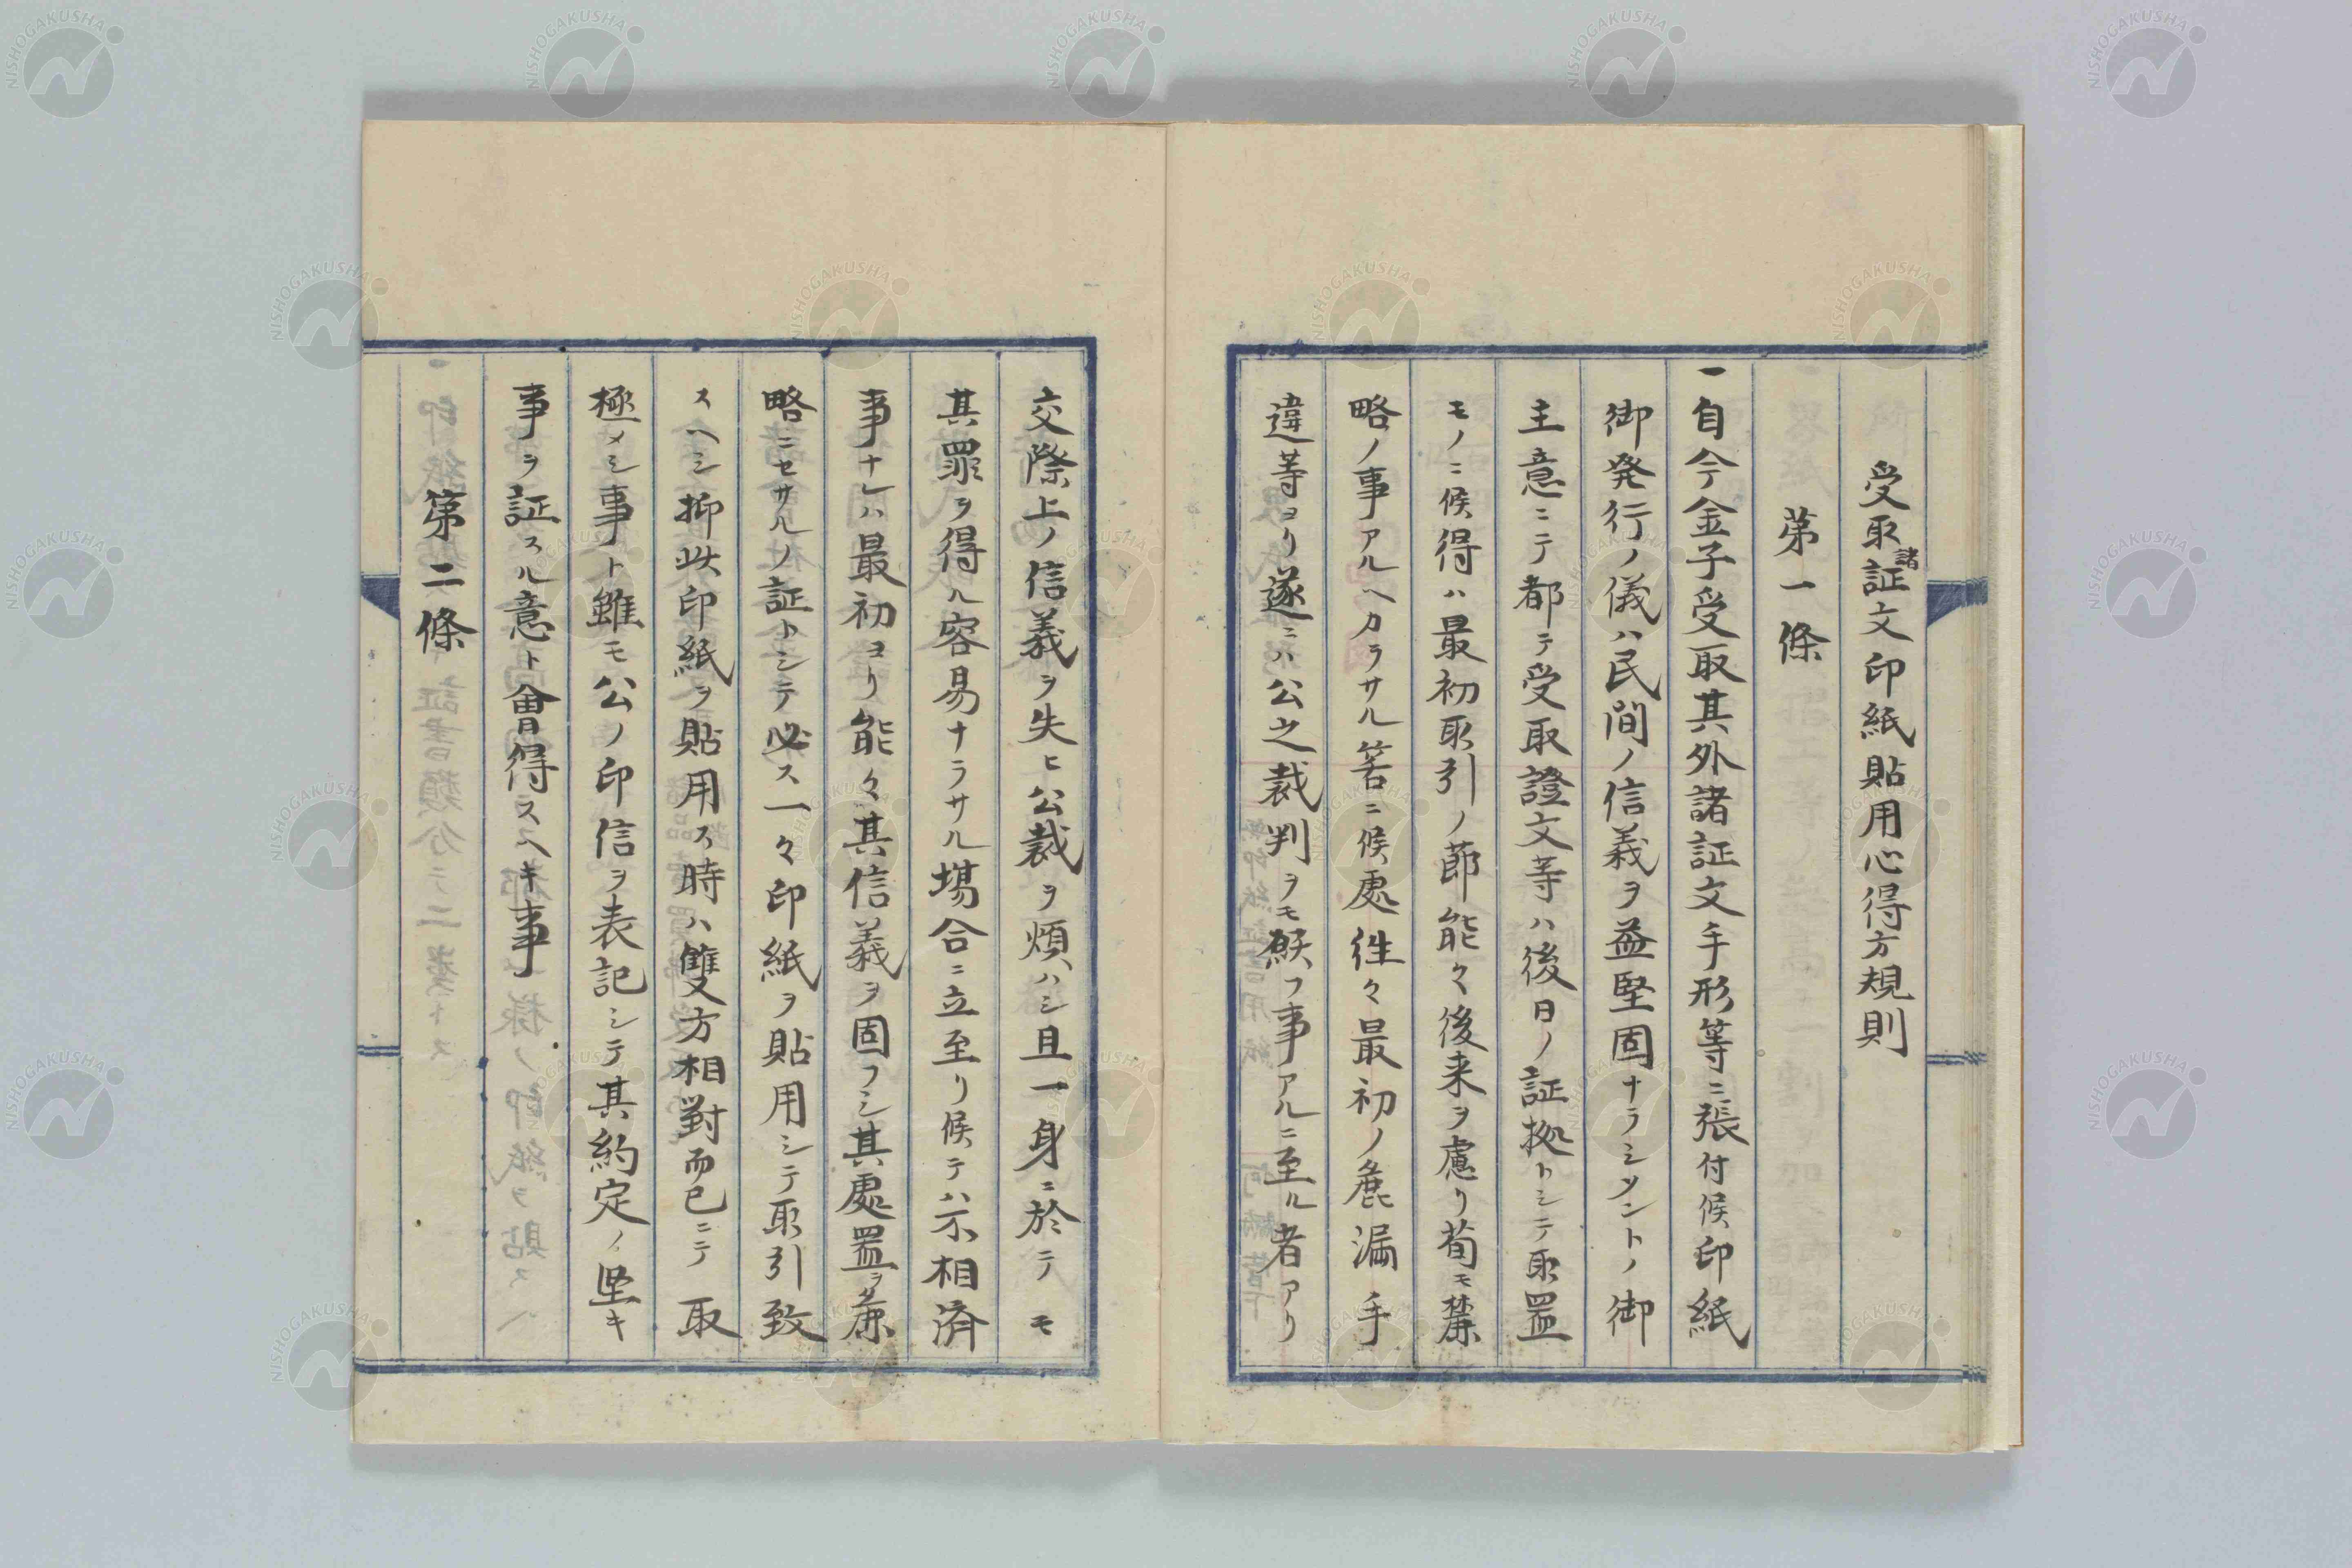 受取諸証文印紙貼用心得方規則
第一條
一自今金子受取其外諸証文手形等ニ張付候印紙
御発行ノ儀ハ民間ノ信義ヲ益堅固ナラシメントノ御
主意ニテ都テ受取證文等ハ後日ノ証拠トシテ取置
モノニ候得ハ最初取引ノ節能々後来ヲ慮リ苟モ麁
略ノ事アルヘカラサル筈ニ候處徃々最初ノ麁漏手
違等ヨリ遂ニハ公之裁判ヲモ願フ事アルニ至ル者アリ
交際上ノ信義ヲ失ヒ公裁ヲ煩ハシ且一身ニ於テモ
其罪ヲ得ル容易ナラサル場合ニ立至リ候テハ不相済
事ナレハ最初ヨリ能々其信義ヲ固フシ其處置ヲ麁
略ニセサルノ証トシテ必ス一々印紙ヲ貼用シテ取引致
スヘシ抑此印紙ヲ貼用スル時ハ雙方相對而已ニテ取
極メシ事ト雖モ公ノ印信ヲ表記シテ其約定ノ堅キ
事ヲ証スル意ト會得スヘキ事
第二條
NISHOGAKUSHA